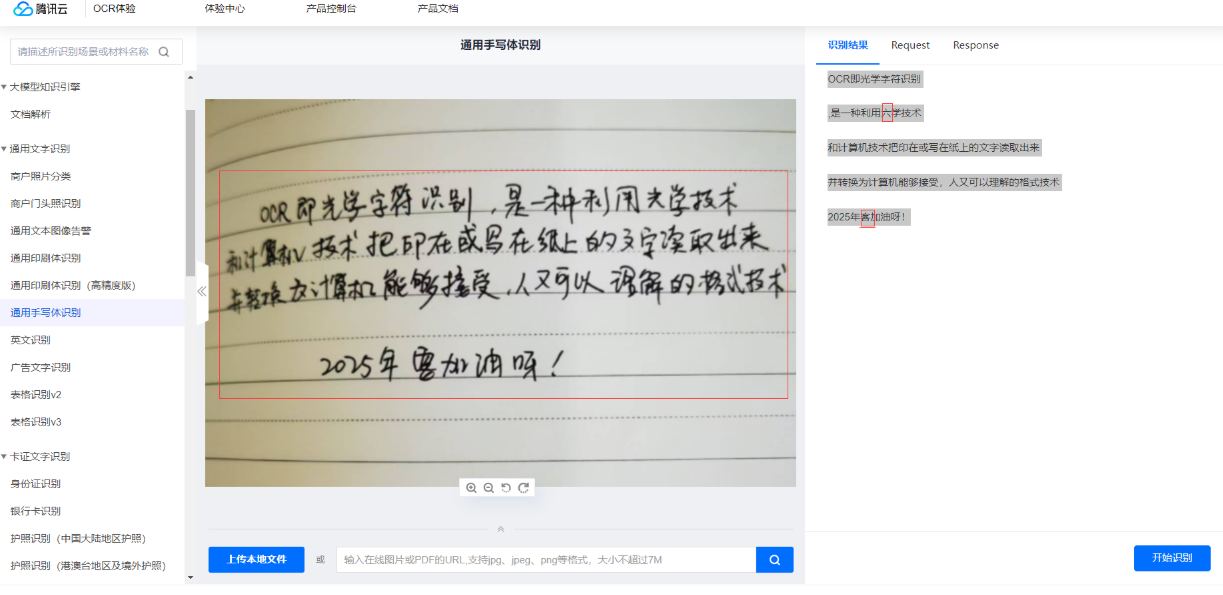 腾讯云 OCR体验 体验中心 产品控制台 产品文档
请描述所识别场景或材料名称
大模型知识引擎
文档解析
通用文字识别
商户照片分类
商户门头照识别
通用文本图像告警
通用印刷体识别
通用印刷体识别（高精度版）
通用手写体识别
英文识别
广告文字识别
表格识别v2
表格识别v3
卡证文字识别
身份证识别
银行卡识别
护照识别（中国大陆地区护照）
护照识别（港澳台地区及境外护照）
通用手写体识别
OCR即光学字符识别，是一种利用光学技术
和计算机技术把印在或写在纸上的文字读取出来
并转换为计算机能够接受，人又可以理解的格式技术
2025年要加油呀！
上传本地文件 或 输入在线图片或PDF的URL,支持jpg、jpeg、png等格式，大小不超过7M
识别结果 Request Response
OCR即光学字符识别
,是一种利用六学技术
和计算机技术把印在或写在纸上的文字读取出来
并转换为计算机能够接受，人又可以理解的格式技术
2025年客加油呀！
开始识别